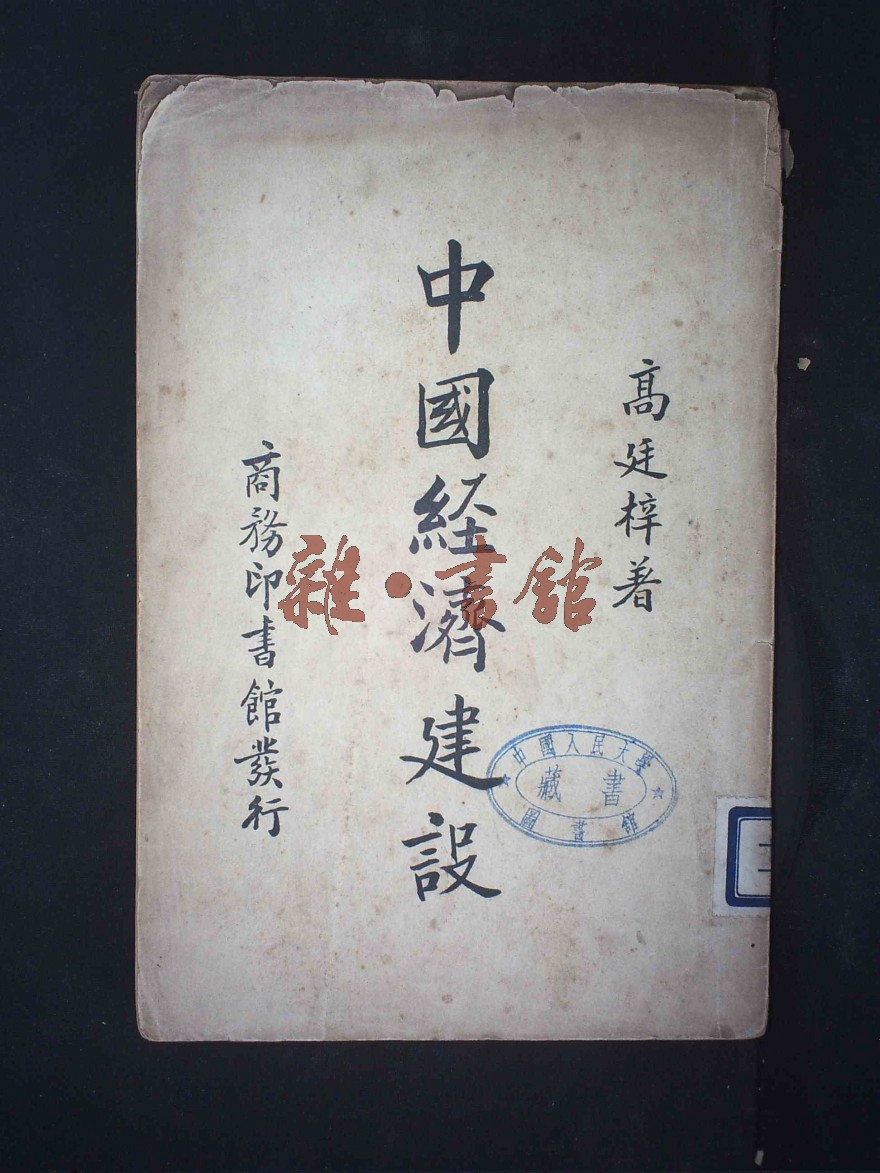 高廷梓著
中國経濟建設
商務印書館發行
雜·書館
中國人民大學
藏書
圖書館